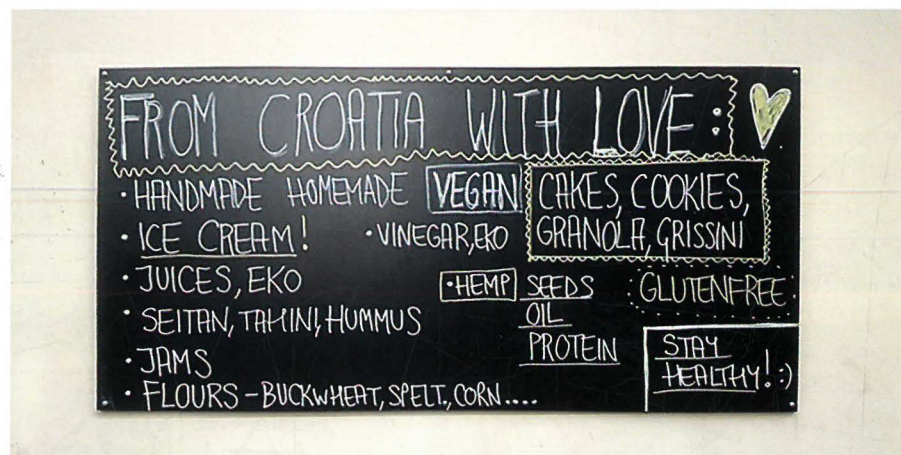 FROM CROATIA WITH LOVE:
• HANDMADE HOMEMADE VEGAN CAKES, COOKIES,
GRANOLA, GRISSINI
• ICE CREAM! • VINEGAR, EKO
• JUICES, EKO
• HEMP SEEDS
OIL
PROTEIN
GLUTENFREE
• SEITAN, TAHINI, HUMMUS
• JAMS
• FLOURS - BUCKWHEAT, SPELT, CORN....
STAY
HEALTHY! :)